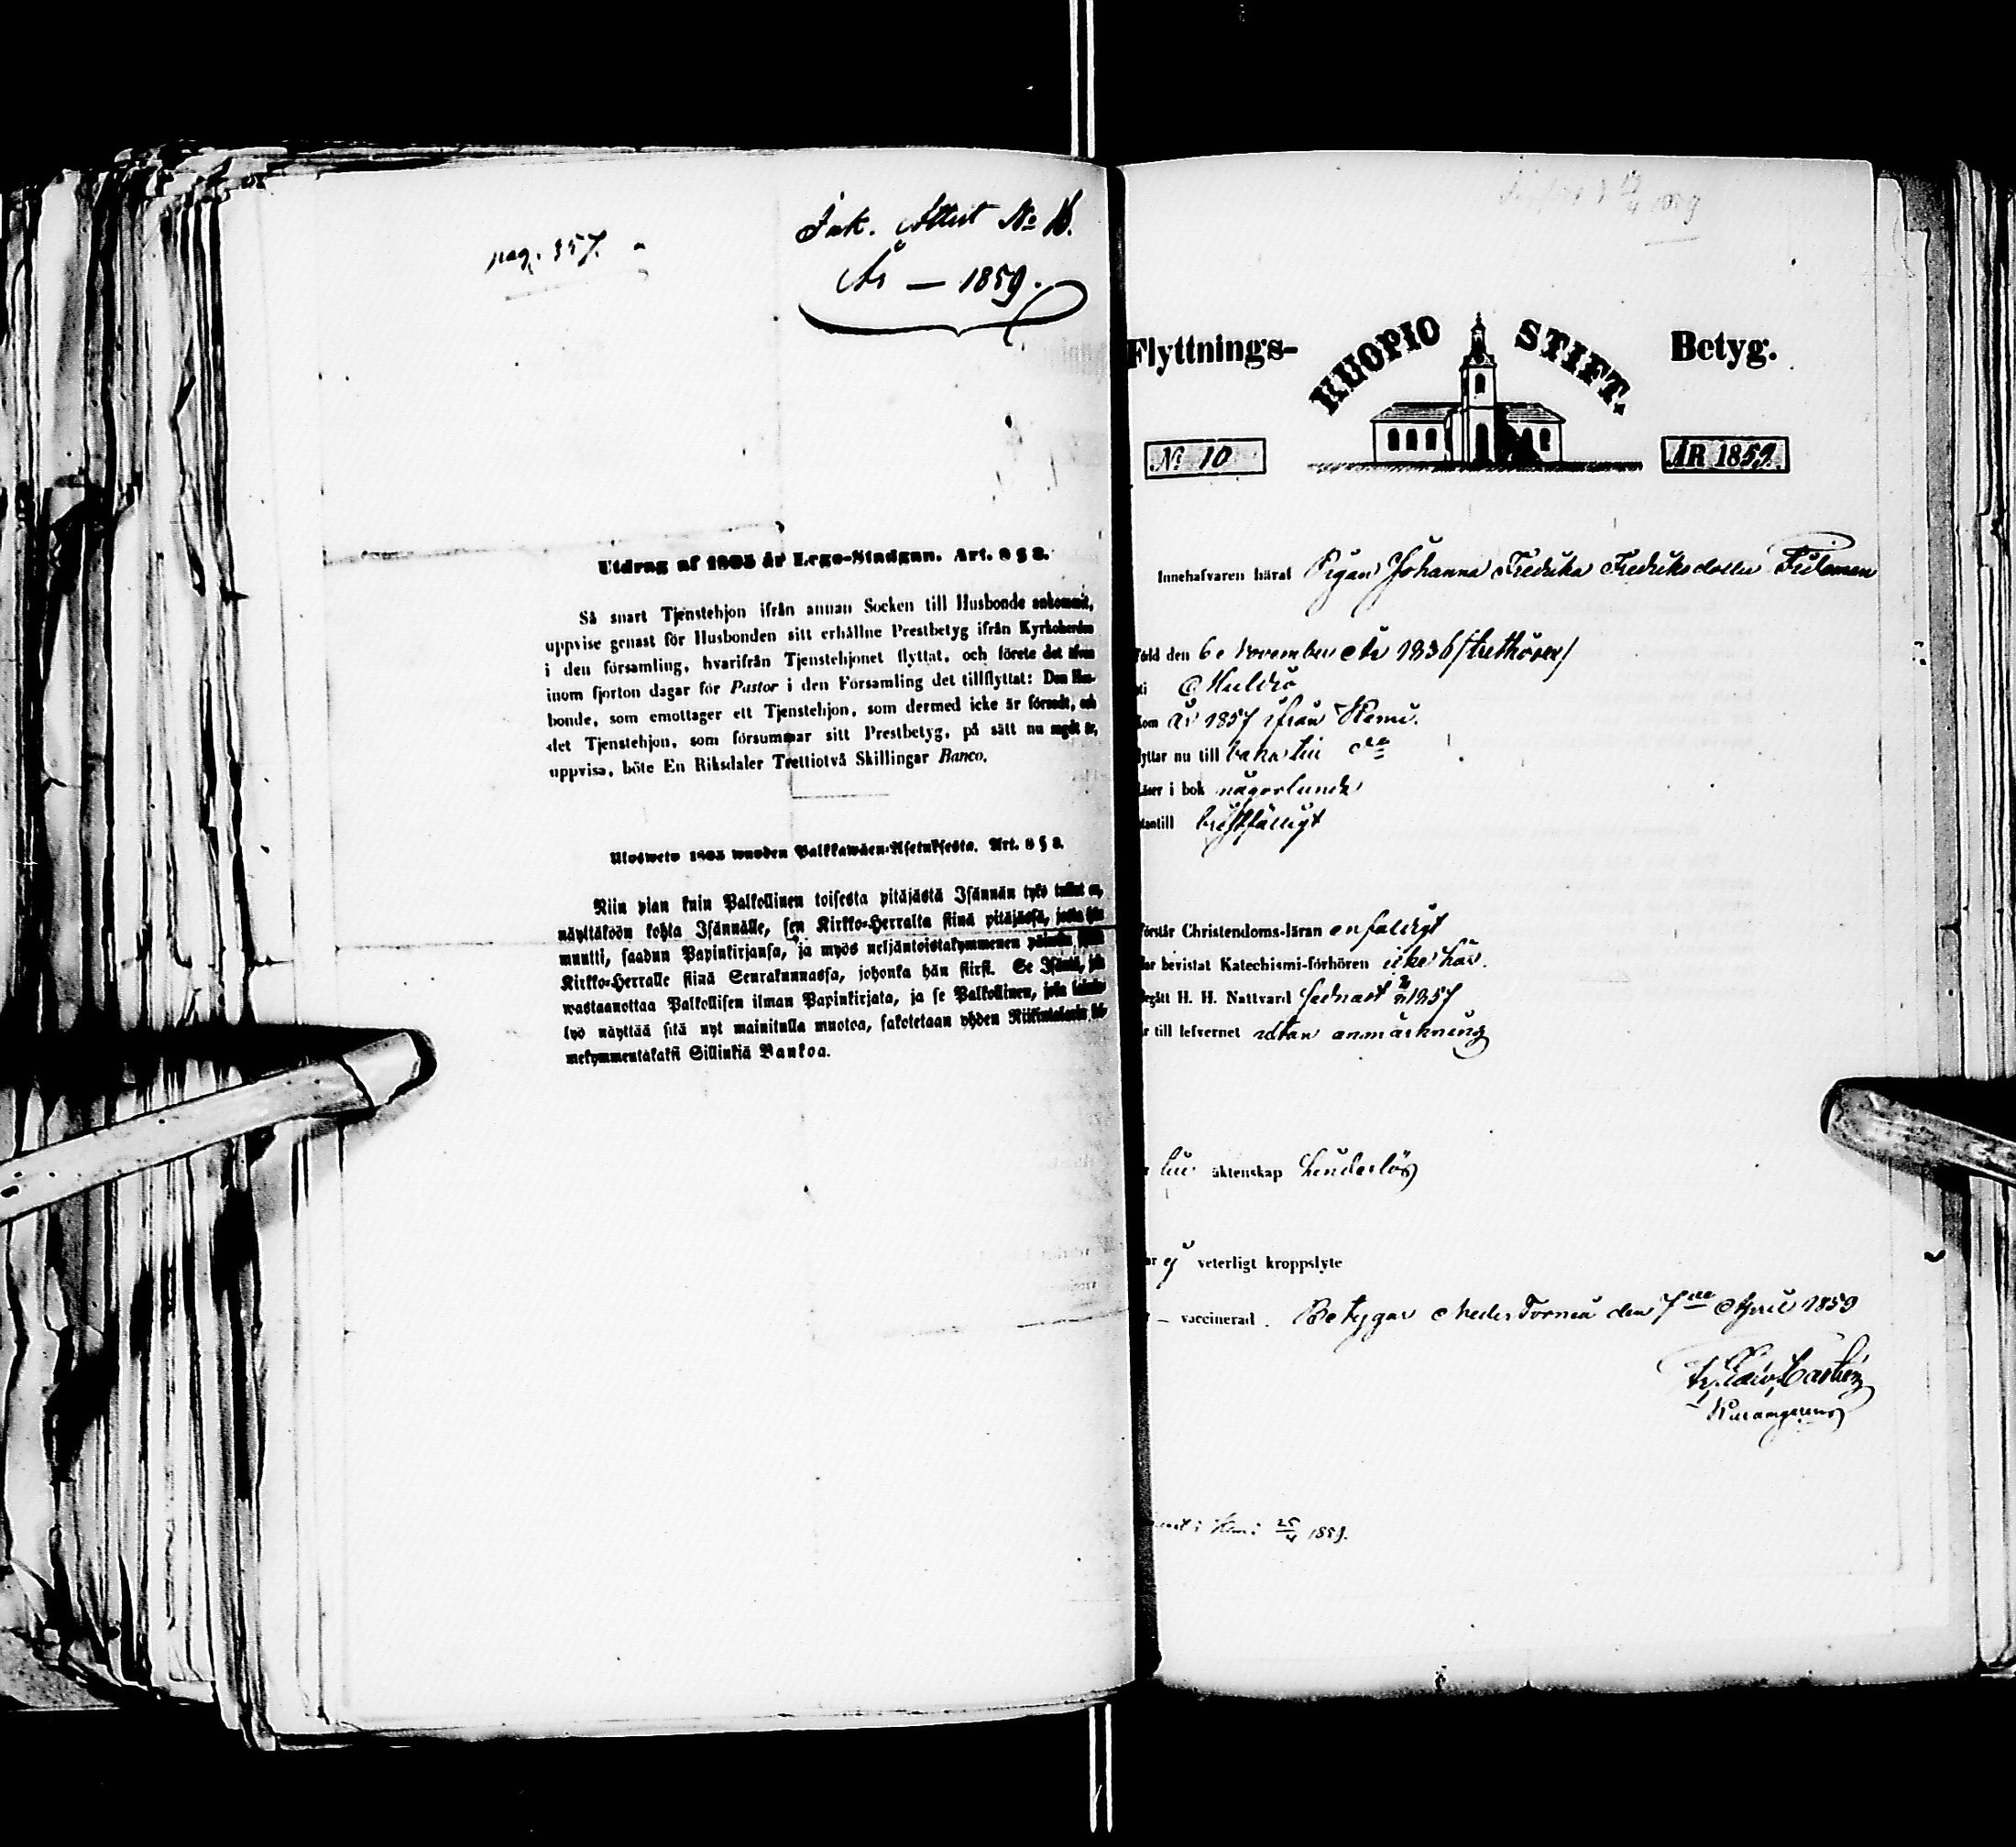 pag. 357.
Ink. Attest No 16.
År — 1859.
Utdrag af 1805 år Lego-Stadgan. Art. 8 § 3.
Så snart Tjenstehjon ifrån annan Socken till Husbonde ankommit,
uppvise genast för Husbonden sitt erhållne Prestbetyg ifrån Kyrkoherden
i den församling, hvarifrån Tjenstehjonet flyttat, och förete det äfven
inom fjorton dagar för Pastor i den Församling det tillflyttat: Den Hus-
bonde, som emottager ett Tjenstehjon, som dermed icke är försedt, och
det Tjenstehjon, som försummar sitt Prestbetyg, på sätt nu sagdt är,
uppvisa, böte En Riksdaler Trettiotvå Skillingar Banco.
Uloswето 1805 wuoden Palkkawäen-Asetuksesta. Art. 8 § 3.
Niin pian kuin Palkollinen toisesta pitäjästä Isännän tykö tullut on,
näyttäköön kohta Isännälle, sen Kirkko-Herralta siinä pitäjässä, josta hän
muutti, saadun Papinkirjansa, ja myös neljäntoistakymmenen päiwän
Kirkko-Herralle siinä Seurakunnassa, johonka hän siirsi. Se Isäntä, joka
wastaanottaa Palkollisen ilman Papinkirjata, ja se Palkollinen, joka
lyö näyttää sitä nyt mainitulla muotoa, sakotetaan yhden Riikintalarin
mekymmentäkaksi Sillinkiä Bankoa.
1859
Flyttnings- KUOPIO STIFT. Betyg.
No 10 ÅR 1859.
Innehafvaren häraf Pigan Johanna Fredrika Fredriksdotter
Född den 6e November År 1836 /trethörer/
Kom År 1857 ifrån Kemi.
flyttar nu till baka till
Läser i bok någorlunda
utantill bristfälligt
förstår Christendoms-läran enfaldigt
har bevistat Katechismi-förhören icke här.
begått H. H. Nattvard sednast 1857
är till lefvernet utan anmärkning
till äktenskap hinderlös
har ej veterligt kroppslyte
– vaccinerad. Betygar Neder Torneå den 7de April 1859
Castrén
i Kemi 25/4 1859.